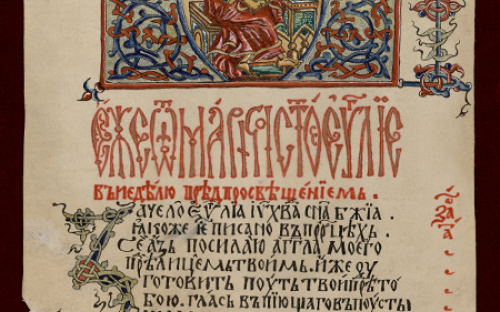 Е́ЖЕ Ѿ МА́РКА СТ҃ОЕ ЕѴ҃ЛІЕ
въ недѣлю прѣⷣ просвѣщенїемь.
Зачело еѵ҃лїа іѵ҃ хв҃а сн҃а бж҃їа.
ꙗкоже е писано въ прⷪ҇рцѣхь.
се азь посилаю аггл҃а моего
прѣⷣ лицемь твоимь. иже оу
готовить поуть твои прѣⷣ то
бою. глась въпїющаго въ поусты
за҃
а҃